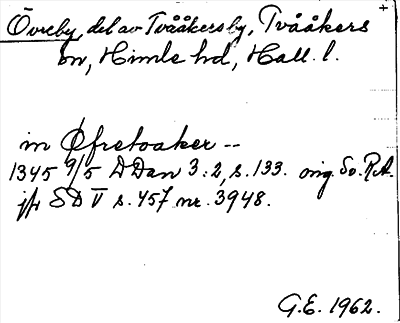 Övreby, del av Tvååkersby, Tvååkers
sn, Himle hd, Hall. l.
in Øfretoaker --
1345 9/5 DDan 3:2, s. 133. orig. Sv. R.A.
jfr SD V s. 457 nr. 3948.
G.E. 1962.